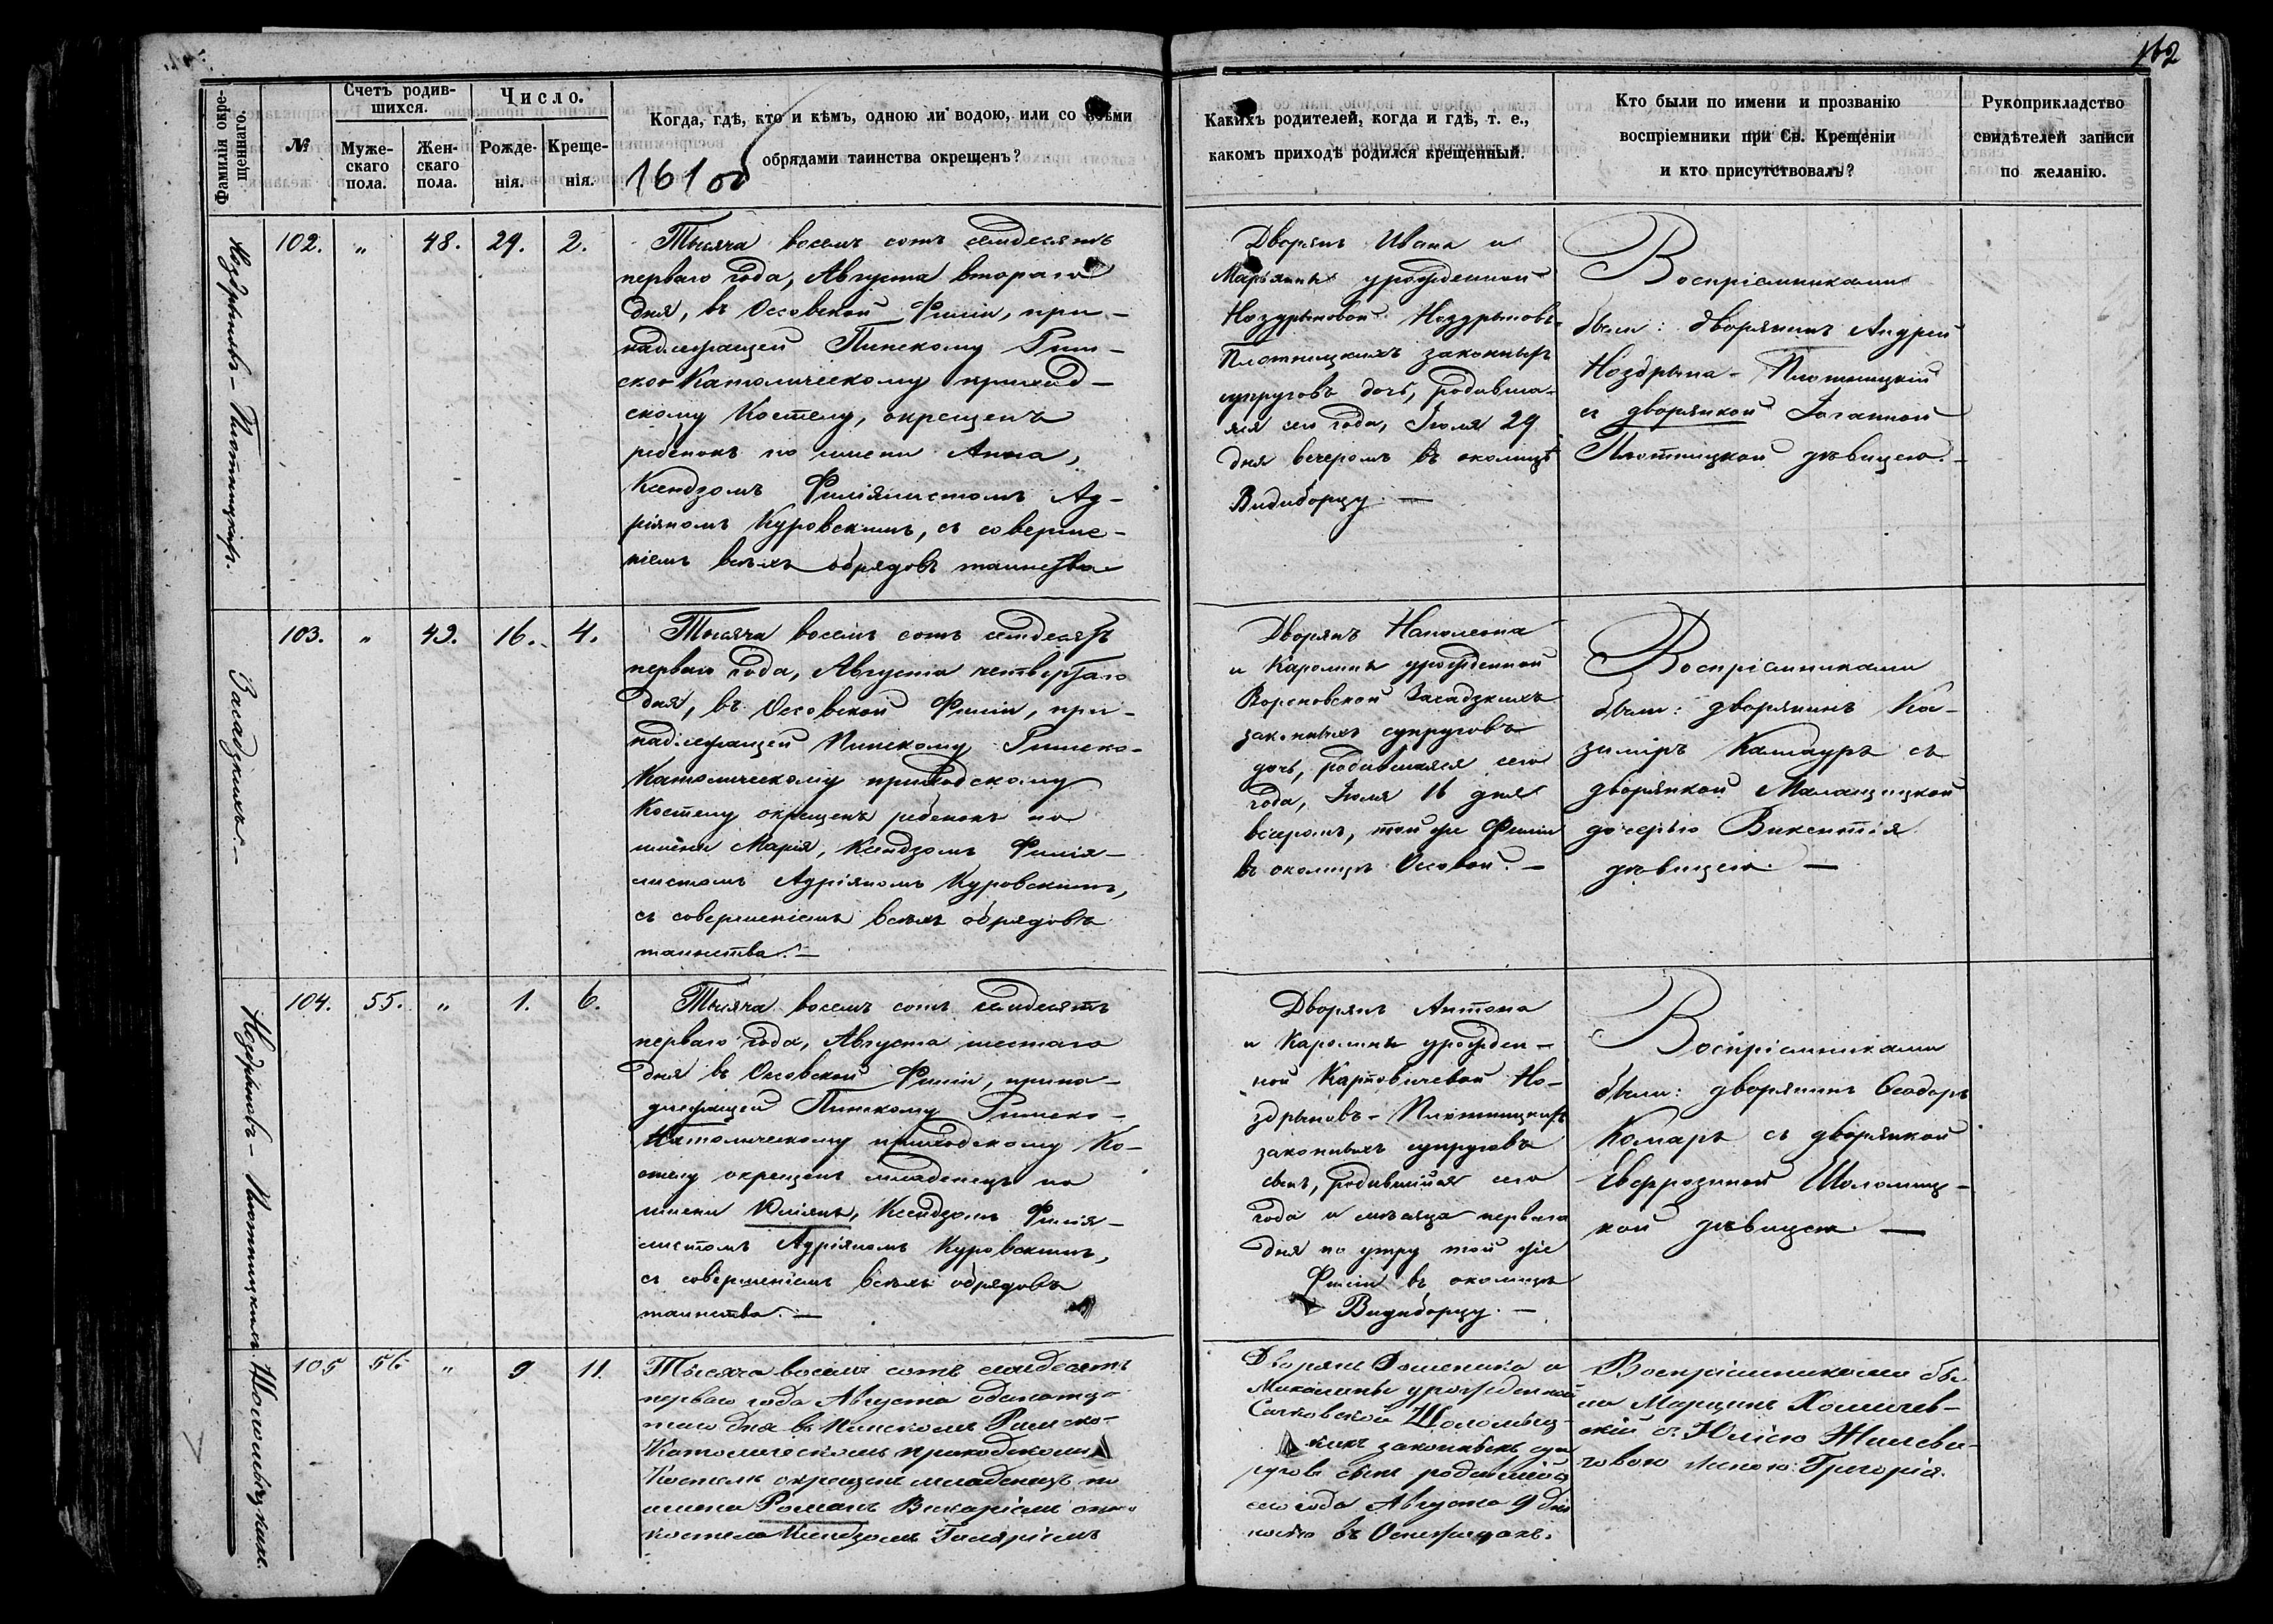 162
Фамилія окре-
щеннаго.
№
Счетъ родив-
шихся.
Муже-
скаго
пола.
Жен-
скаго
пола.
Число.
Рожде-
нія.
Креще-
нія.
Когда, гдѣ, кто и кѣмъ, одною ли водою, или со всѣми
обрядами таинства окрещенъ?
Какихъ родителей, когда и гдѣ, т. е.,
какомъ приходѣ родился крещенный.
Кто были по имени и прозванію
воспріемники при Св. Крещеніи
и кто присутствовалъ?
Рукоприкладство
свидѣтелей записи
по желанію.
Ноздрыновъ-Плотницкихъ.
102.
"
48.
29.
2.
Тысяча восемь сотъ семдесятъ
перваго года, Августа втораго
дня, въ Оссовской Филіи, при-
надлежащей Пинскому Рим-
ско-Католическому приход-
скому Костелу, окрещенъ
ребенокъ по имени Анна,
Ксендзомъ Филіялистомъ Ад-
ріяномъ Куровскимъ, съ соверше-
ніемъ всѣхъ обрядовъ таинства
Дворянъ Ивана и
Марьянны урожденной
Ноздрыновой Ноздрыновъ-
Плотницкихъ законныхъ
супруговъ дочь, родивша-
яся сего года, Іюля 29
дня вечеромъ въ околицѣ
Видиборцу. —
Воспріемниками
были: дворянинъ Андрей
Ноздрына-Плотницкій
съ дворянкой Іоганной
Плотницкой дѣвицею. —
Засадзкихъ. —
103.
"
49.
16.
4.
Тысяча восемь сотъ семдесятъ
перваго года, Августа четвертаго
дня, въ Оссовской Филіи, при-
надлежащей Пинскому Римско-
Католическому приходскому
Костелу окрещенъ ребенокъ по
имени Марія, Ксендзомъ Филія-
листомъ Адріяномъ Куровскимъ,
съ совершеніемъ всѣхъ обрядовъ
таинства. —
Дворянъ Наполеона
и Каролины урожденной
Засадзкихъ
законныхъ супруговъ
дочь, родившаяся сего
года, Іюля 16 дня
вечеромъ, той же Филіи
въ околицѣ Оссовой. —
Воспріемниками
были: дворянинъ Ка-
зиміръ съ
дворянкой
дочерью Викентія
дѣвицею. —
Ноздрыновъ-Плотницкихъ
104.
55.
"
1.
6.
Тысяча восемь сотъ семдесятъ
перваго года, Августа шестаго
дня въ Оссовской Филіи, прина-
длежащей Пинскому Римско-
Католическому приходскому Ко-
стелу окрещенъ младенецъ по
имени Юліянъ, Ксендзомъ Филія-
листомъ Адріяномъ Куровскимъ,
съ совершеніемъ всѣхъ обрядовъ
таинства. —
Дворянъ Антона
и Каролины урожден-
ной Карповичевой Но-
здрыновъ-Плотницкихъ
законныхъ супруговъ
сынъ, родившійся сего
года и мѣсяца перваго
дня по утру той же
Филіи въ околицѣ
Видиборцу. —
Воспріемниками
были: дворянинъ Ѳеодоръ
Комаръ съ дворянкой
Евфрозиной Шоломиц-
кой дѣвицею. —
Шоломыцкихъ.
105
56
"
9
11.
Тысяча восемь сотъ семдесятъ
перваго года Августа одинатца-
таго дня въ Пинскомъ Римско-
Католическомъ приходскомъ
Костелѣ окрещенъ младенецъ по
имени Романъ Викаріемъ онаго
костела Ксендзомъ Гиляріемъ
Дворянъ Доминика и
урожденной
Сачковской Шоломыц-
кихъ законныхъ суп
руговъ сынъ родившійся
сего года Августа 9 дня
въ
Воспріемниками бы
ли Марцинъ
съ Юліею
женою Григорія.